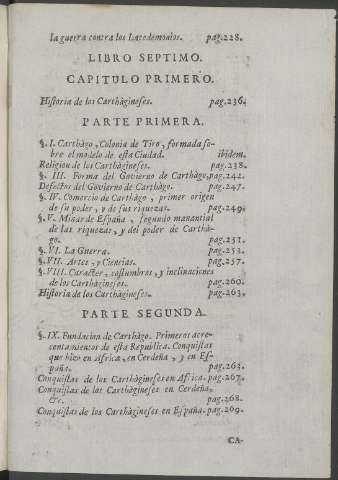 la guerra contra los Lacedemonios. pag.228.
LIBRO SEPTIMO.
CAPITULO PRIMERO.
Historia de los Carthàgineses. pag.236.
PARTE PRIMERA.
§. I. Carthàgo, Colonia de Tiro, formada so-
bre el modelo de esta Ciudad. ibidem.
Religion de los Carthàgineses. pag.238.
§. III. Forma del Govierno de Carthàgo, pag.242.
Defectos del Govierno de Carthàgo. pag.247.
§. IV. Comercio de Carthàgo, primer origen
de su poder, y de sus riquezas. pag.249.
§. V. Minas de España, segundo manantial
de las riquezas, y del poder de Carthà-
go. pag.251.
§. VI. La Guerra. pag.253.
§. VII. Artes, y Ciencias. pag.257.
§. VIII. Caracter, costumbres, y inclinaciones
de los Carthàgineses. pag.260.
Historia de los Carthàgineses. pag.263.
PARTE SEGUNDA.
§. IX. Fundacion de Carthàgo. Primeros acre-
centamientos de esta Republica. Conquistas
que hizo en Africa, en Cerdeña, y en Es-
paña. pag.263.
Conquistas de los Carthàgineses en Africa. pag.267.
Conquistas de los Carthàgineses en Cerdeña,
&c. pag.268.
Conquistas de los Carthàgineses en España. pag.269.
CA-